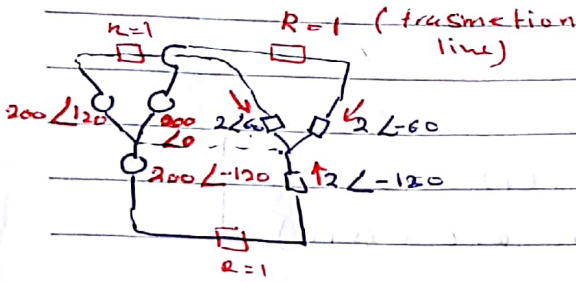 R=1
R=1 (trasmetion
line)
200∠120
200
∠0
2∠60
2∠-60
200∠-120
2∠-120
R=1